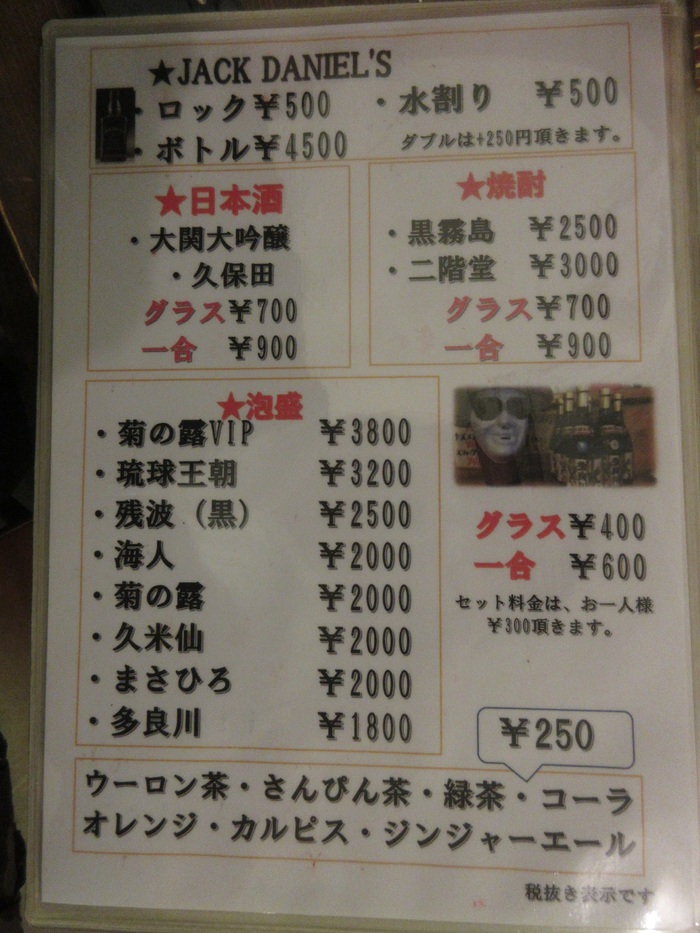 ★JACK DANIEL'S
・ロック¥500 ・水割り ¥500
・ボトル¥4500 ダブルは+250円頂きます。
★日本酒
・大関大吟醸
・久保田
グラス¥700
一合 ¥900
★焼酎
・黒霧島 ¥2500
・二階堂 ¥3000
グラス¥700
一合 ¥900
★泡盛
・菊の露VIP ¥3800
・琉球王朝 ¥3200
・残波（黒） ¥2500
・海人 ¥2000
・菊の露 ¥2000
・久米仙 ¥2000
・まさひろ ¥2000
・多良川 ¥1800
グラス¥400
一合 ¥600
セット料金は、お一人様
¥300頂きます。
¥250
ウーロン茶・さんぴん茶・緑茶・コーラ
オレンジ・カルピス・ジンジャーエール
税抜き表示です